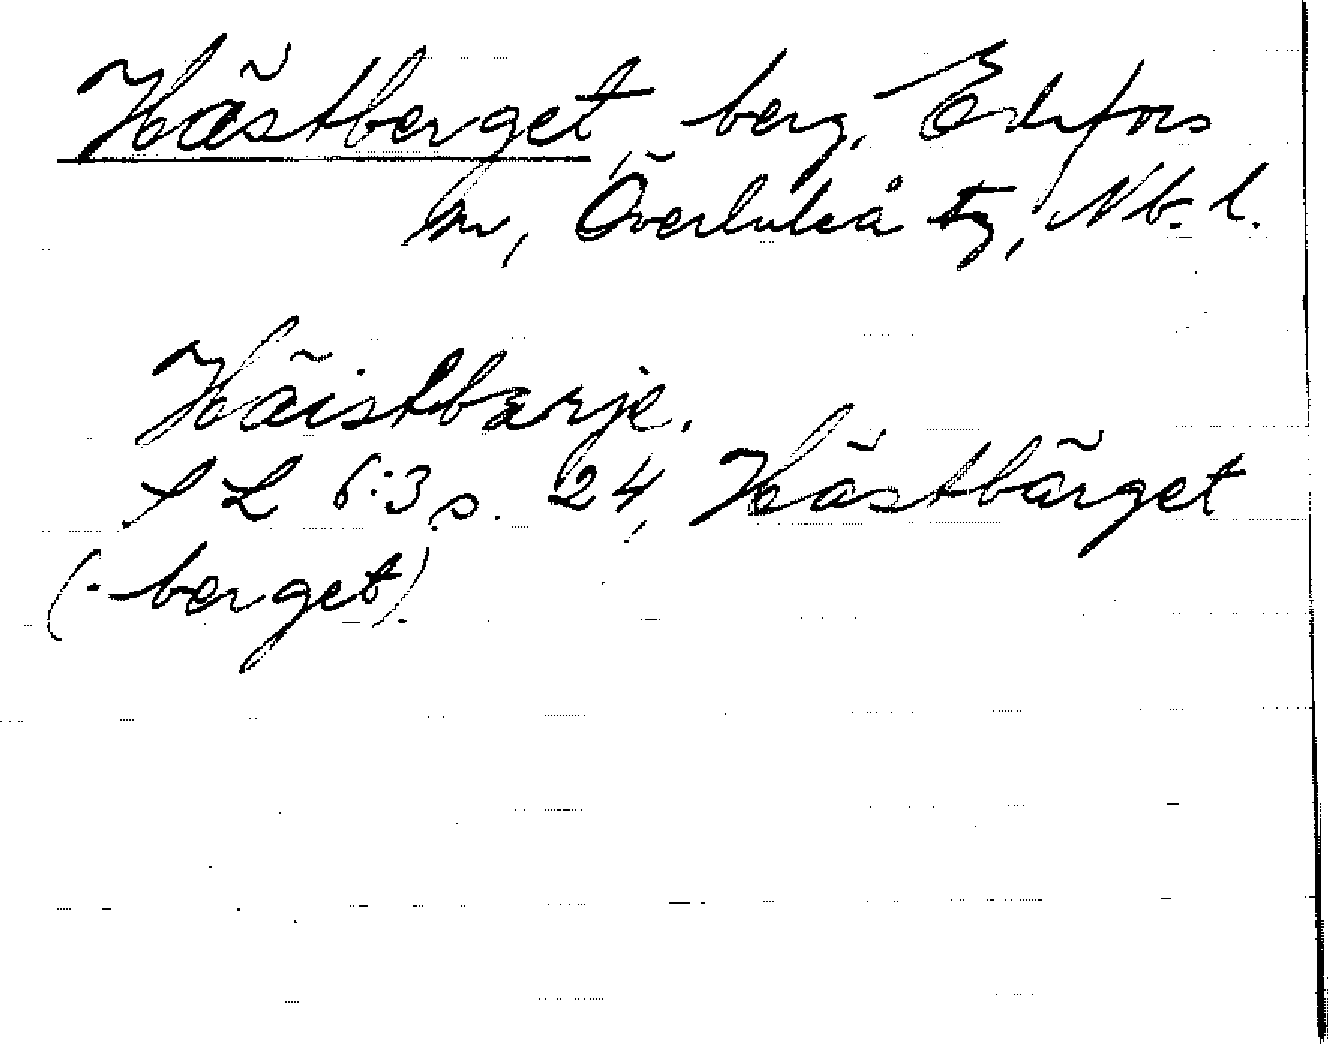 Hästberget, berg, Edefors
sn, Överluleå tg, Nb. l.
Häistbærje.
SL 6:3 s. 24, Hästbärget
(-berget).